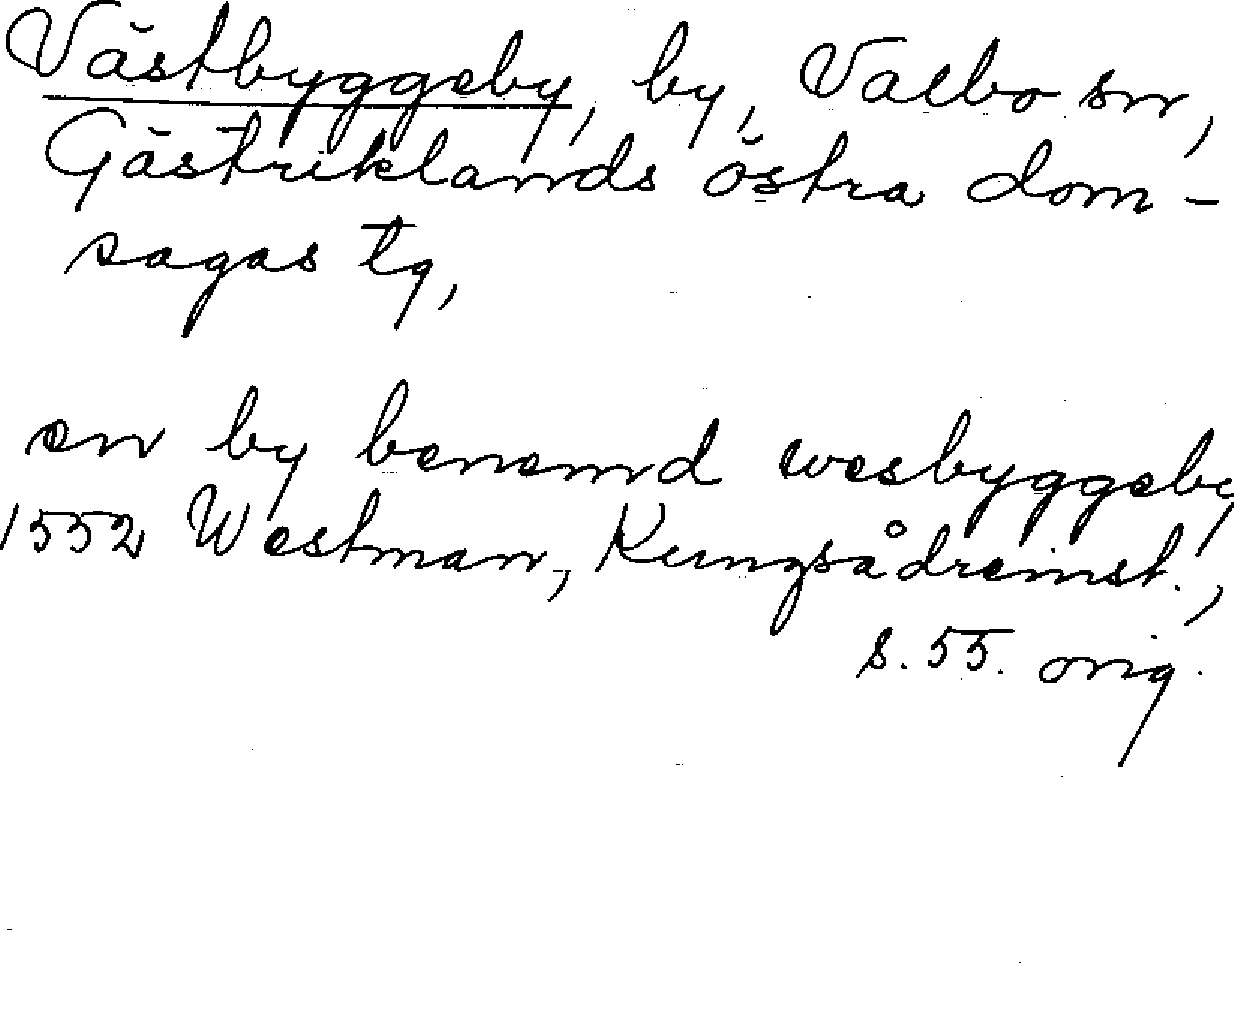 Västbyggeby, by, Valbo sn,
Gästriklands östra dom-
sagas tg,
en by benemd wesbyggeby
1552 Westman, Kungsådreinst.,
s. 55. orig.